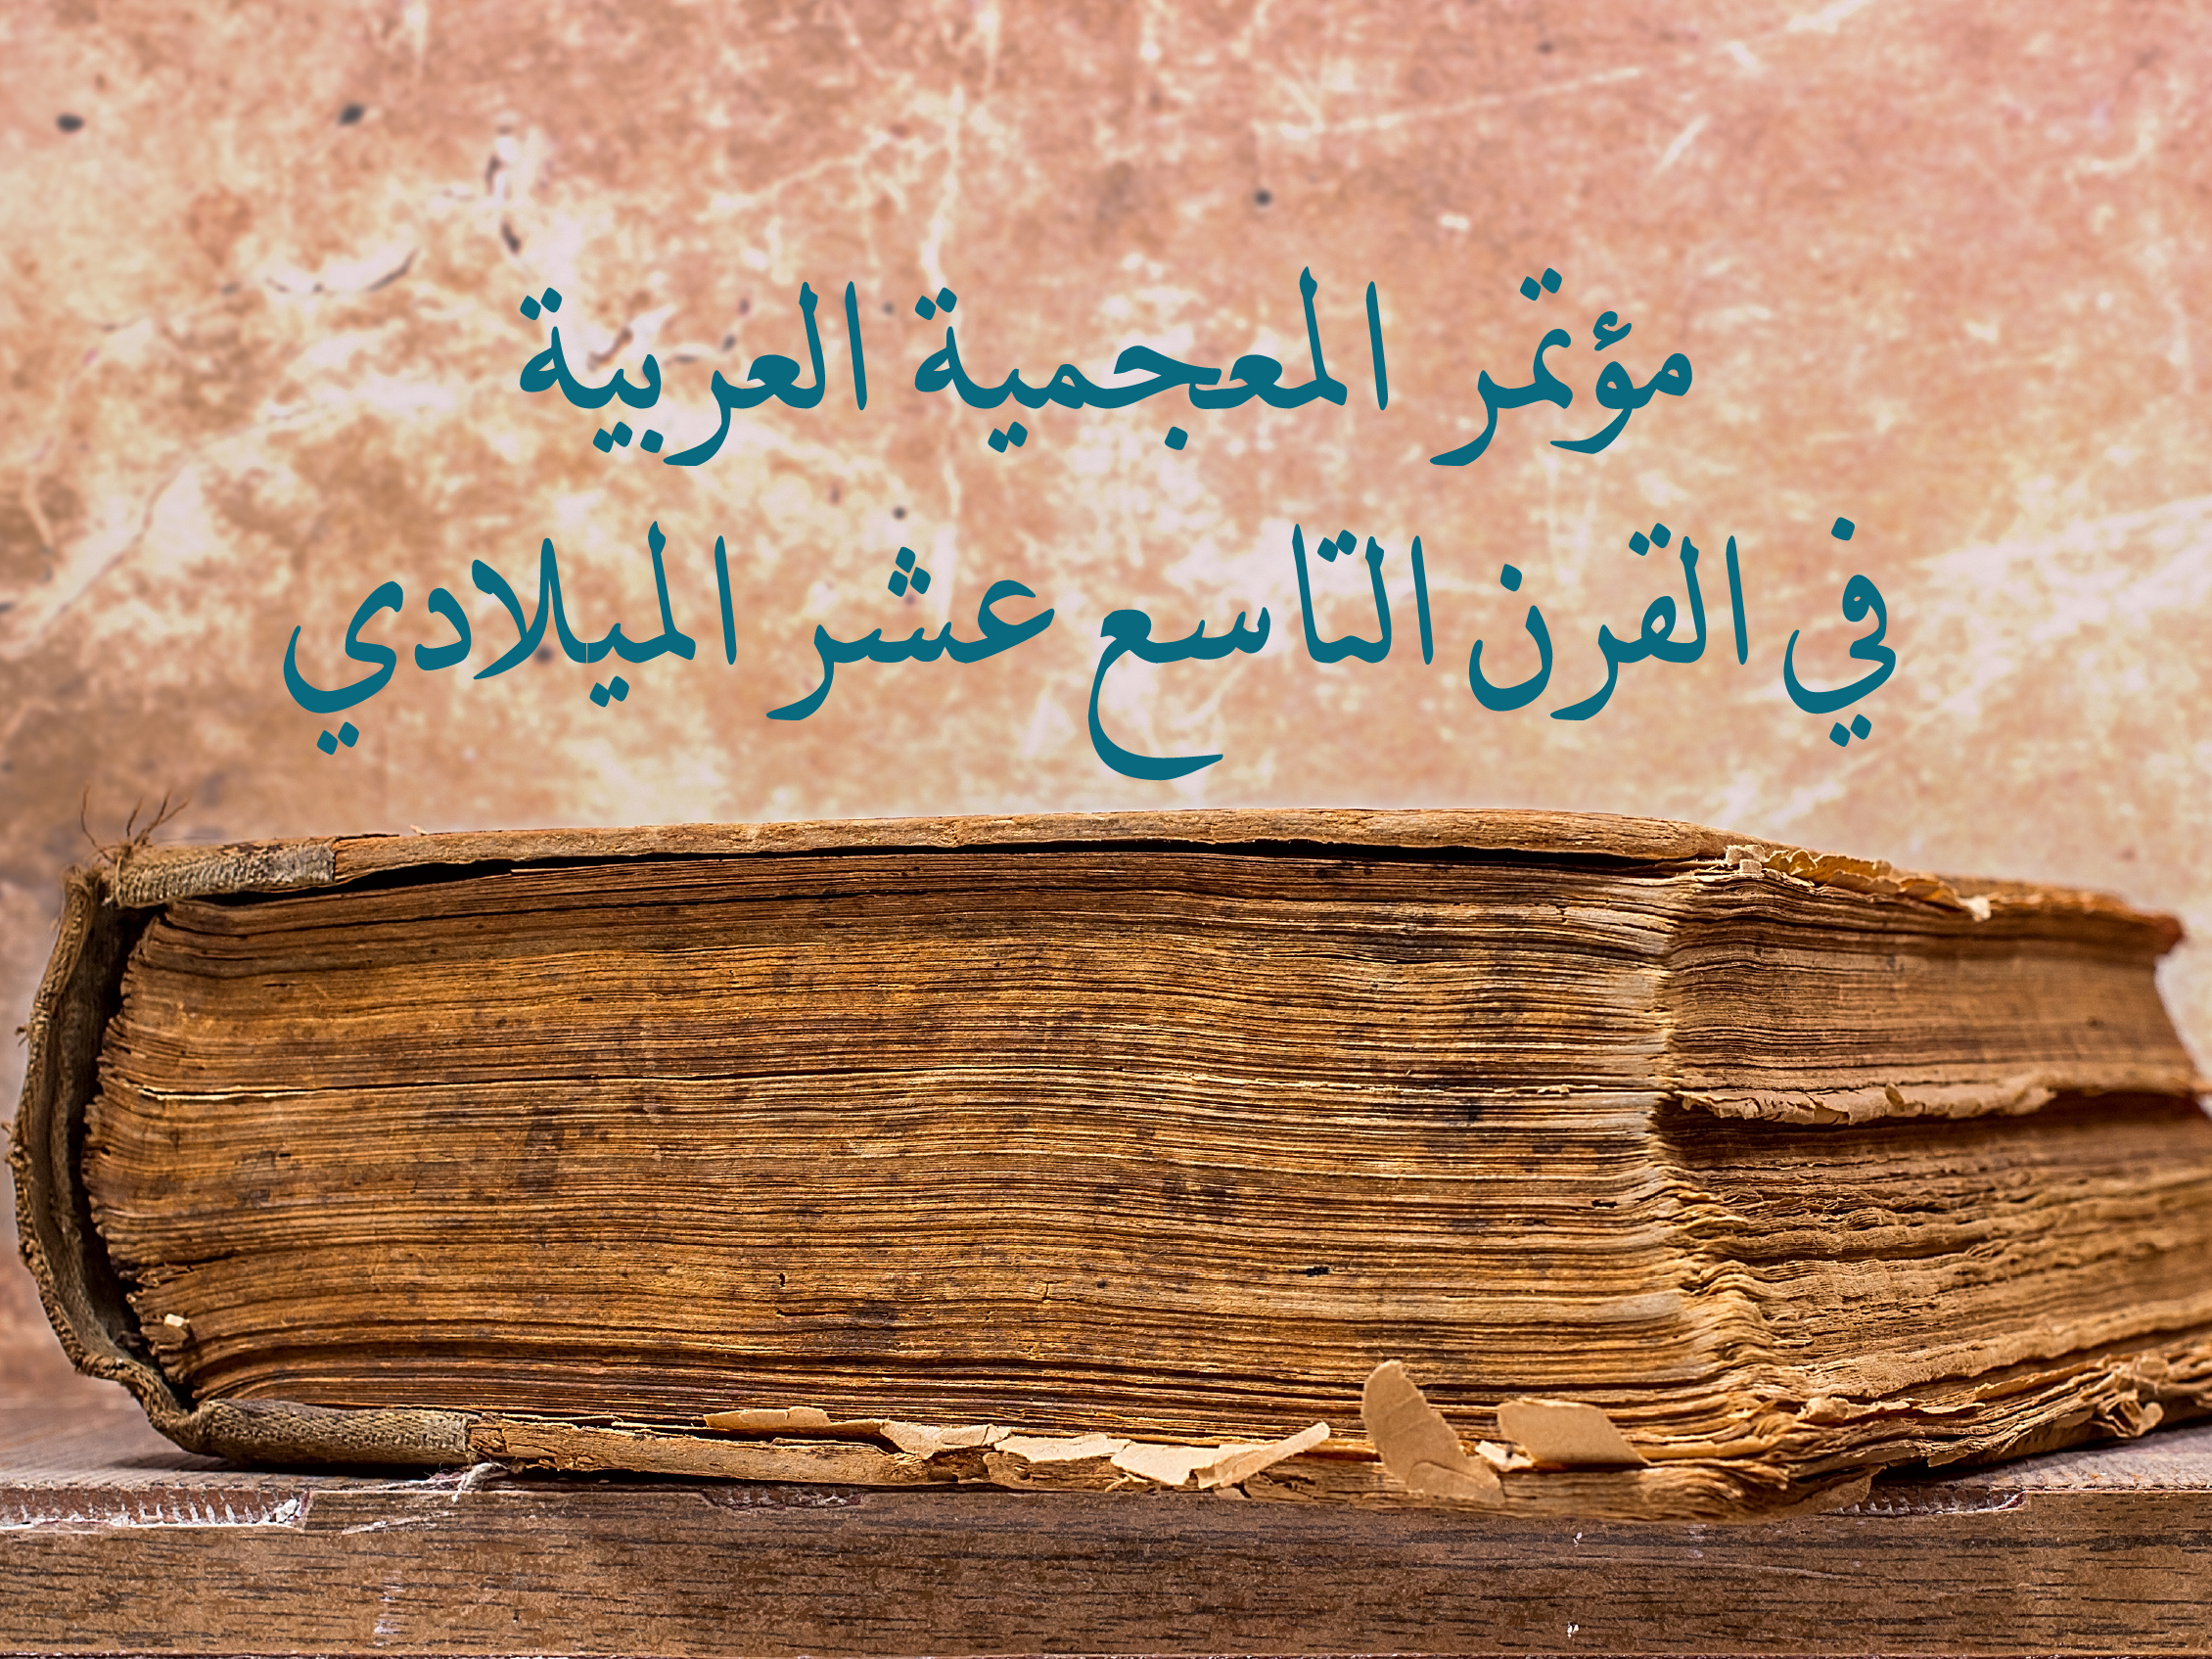 مؤتمر المعجمية العربية
في القرن التاسع عشر الميلادي